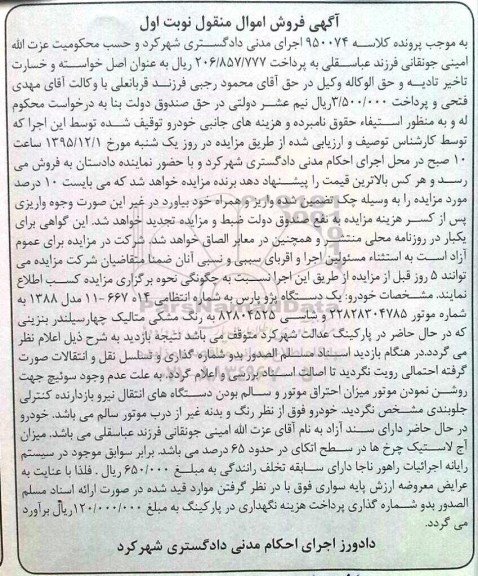 آگهی فروش اموال منقول نوبت اول
به موجب پرونده کلاسه ۹۵۰۰۷۴ اجرای مدنی دادگستری شهرکرد و حسب محکومیت عزت الله
امینی جونقانی فرزند عباسقلی به پرداخت ۲۰۶/۸۵۷/۷۷۷ ریال به عنوان اصل خواسته و خسارت
تاخیر تادیه و حق الوکاله وکیل در حق آقای محمود رجبی فرزند قربانعلی با وکالت آقای مهدی
فتحی و پرداخت ۳/۵۰۰/۰۰۰ریال نیم عشر دولتی در حق صندوق دولت بنا به درخواست محکوم
له و به منظور استیفاء حقوق نامبرده و هزینه های جانبی خودرو توقیف شده توسط این اجرا که
توسط کارشناس توصیف و ارزیابی شده از طریق مزایده در روز یک شنبه مورخ ۱۳۹۵/۱۲/۱
۱۰ صبح در محل اجرای احکام مدنی دادگستری شهرکرد و با حضور نماینده دادستان به فروش می
رسد و هر کس بالاترین قیمت را پیشنهاد دهد برنده مزایده خواهد شد که می بایست ۱۰ درصد
مورد مزایده را به وسیله چک تضمین شده واریز و همراه خود بیاورد در غیر این صورت وجوه واریزی
پس از کسر هزینه مزایده به نفع صندوق دولت ضبط و مزایده تجدید خواهد شد. این گواهی برای
یکبار در روزنامه محلی منتشر و همچنین در معابر الصاق خواهد شد. شرکت در مزایده برای عموم
آزاد است به استثناء مسئولین اجرا و اقربای سببی و نسبی آنان ضمنا متقاضیان شرکت مزایده می
توانند ۵ روز قبل از مزایده از طریق این اجرا نسبت به چگونگی نحوه برگزاری مزایده کسب اطلاع
نمایند. مشخصات خودرو: یک دستگاه پژو پارس به شماره انتظامی ۱۴ه ۶۶۷ -۱۱ مدل ۱۳۸۸ به
شماره موتور ۲۲۸۲۸۳۰۴۷۸۵ و شاسی ۸۲۸۰۴۵۲۵ به رنگ مشکی متالیک چهارسیلندر بنزینی
که در حال حاضر در پارکینگ عدالت شهرکرد متوقف می باشد نتیجه بازدید به شرح ذیل اعلام نظر
می گردد.در هنگام بازدید اسناد مسلم الصدور بدو شماره گذاری و تسلسل نقل و انتقالات صورت
گرفته احتمالی رویت نگردید تا اصالت اسناد بررسی و اعلام گردد. به علت عدم وجود سوئیچ جهت
روشن نمودن موتور میزان احتراق موتور و سالم بودن دستگاه های انتقال نیرو بازدارنده کنترلی
جلوبندی مشخص نگردید. خودرو فوق از نظر رنگ و بدنه غیر از درب موتور سالم می باشد. خودرو
در حال حاضر دارای سند آزاد به نام آقای عزت الله امینی جونقانی فرزند عباسقلی می باشد. میزان
آج لاستیک چرخ ها در سطح اتکای در حدود ۶۵ درصد می باشد. برابر سوابق موجود در سیستم
رایانه اجرائیات راهور ناجا دارای سابقه تخلف رانندگی به مبلغ ۶۵۰/۰۰۰ ریال . فلذا با عنایت به
عرایض معروضه ارزش پایه سواری فوق با در نظر گرفتن موارد قید شده در صورت ارائه اسناد مسلم
الصدور بدو شماره گذاری پرداخت هزینه نگهداری در پارکینگ به مبلغ ۱۲۰/۰۰۰/۰۰۰ریال برآورد
می گردد.
دادورز اجرای احکام مدنی دادگستری شهرکرد